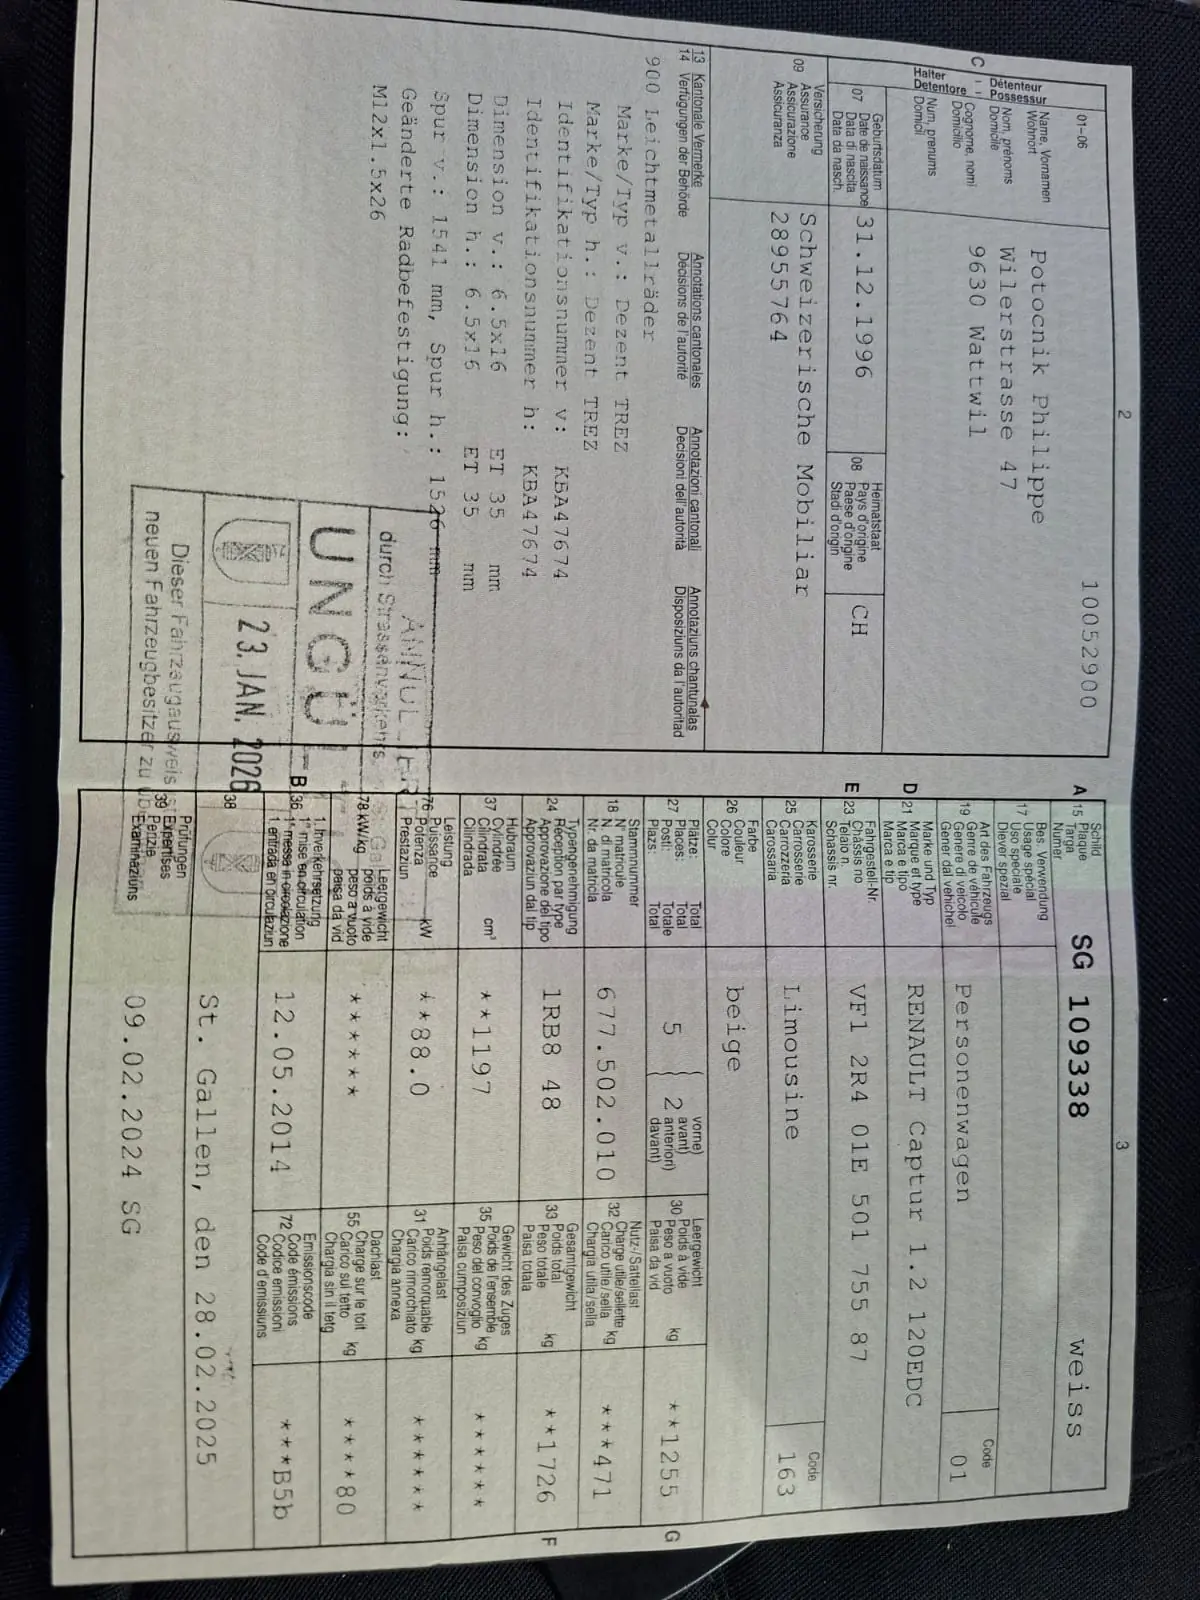 2
10052900
01-06
C - Détenteur - Possessur
Halter Detentore
Name, Vornamen
Wohnort
Nom, prénoms
Domicile
Cognome, nomi
Domicilio
Num, prenums
Domicil
Potocnik Philippe
Wilerstrasse 47
9630 Wattwil
07
Geburtsdatum
Date de naissance
Data di nascita
Data da nasch.
31.12.1996
08
Heimatstaat
Pays d'origine
Paese d'origine
Stadi d'origin
CH
09
Versicherung
Assurance
Assicurazione
Assicuranza
Schweizerische Mobiliar
28955764
13 Kantonale Vermerke Annotations cantonales Annotazioni cantonali Annotaziuns chantunalas
14 Verfügungen der Behörde Décisions de l'autorité Decisioni dell'autorità Disposiziuns da l'autoritad
900 Leichtmetallräder
Marke/Typ v.: Dezent TREZ
Marke/Typ h.: Dezent TREZ
Identifikationsnummer v: KBA47674
Identifikationsnummer h: KBA47674
Dimension v.: 6.5x16 ET 35 mm
Dimension h.: 6.5x16 ET 35 mm
Spur v.: 1541 mm, Spur h.: 1526 mm
Geänderte Radbefestigung:
M12x1.5x26
durch Strassenverkehrs
23. JAN. 2026
Dieser Fahrzeugausweis ist
neuen Fahrzeugbesitzer zu
3
A 15
Schild
Plaque
Targa
Numer
SG 109338 weiss
17
Bes. Verwendung
Usage spécial
Uso speciale
Diever spezial
19
Art des Fahrzeugs
Genre de véhicule
Genere di veicolo
Gener dal vehichel
Personenwagen
Code
01
D 21
Marke und Typ
Marque et type
Marca e tipo
Marca e tip
RENAULT Captur 1.2 120EDC
E 23
Fahrgestell-Nr.
Châssis no
Telaio n.
Schassis nr.
VF1 2R4 01E 501 755 87
25
Karosserie
Carrosserie
Carrozzeria
Carossaria
Limousine
Code
163
26
Farbe
Couleur
Colore
Colur
beige
27
Plätze: Total
Places: Total
Posti: Totale
Plazs: Total
5
2
vorne)
avant)
anteriori)
davant)
30
Leergewicht
Poids à vide
Peso a vuoto
Paisa da vid
kg
**1255
G
18
Stammnummer
N° matricule
N. di matricola
Nr. da matricla
677.502.010
32
Nutz-/Sattellast
Charge utile/sellette
Carico utile/sella
Chargia utila/sella
kg
***471
24
Typengenehmigung
Réception par type
Approvazione del tipo
Approvaziun dal tip
1RB8 48
33
Gesamtgewicht
Poids total
Peso totale
Paisa totala
kg
**1726
F
37
Hubraum
Cylindrée
Cilindrata
Cilindrada
cm³
**1197
35
Gewicht des Zuges
Poids de l'ensemble
Peso del convoglio
Paisa cumposiziun
kg
******
76
Leistung
Puissance
Potenza
Prestaziun
kW
**88.0
31
Anhängelast
Poids remorquable
Carico rimorchiato
Chargia annexa
kg
******
78 kW/kg
Leergewicht
poids à vide
peso a vuoto
paisa da vid
******
55
Dachlast
Charge sur le toit
Carico sul tetto
Chargia sin il tetg
kg
*****80
B 36
1. Inverkehrsetzung
1re mise en circulation
1a messa in circolazione
1. entrada en circulaziun
12.05.2014
72
Emissionscode
Code émissions
Codice emissioni
Code d'emissiuns
***B5b
38
St. Gallen, den 28.02.2025
39
Prüfungen
Expertises
Perizie
Examinaziuns
09.02.2024 SG